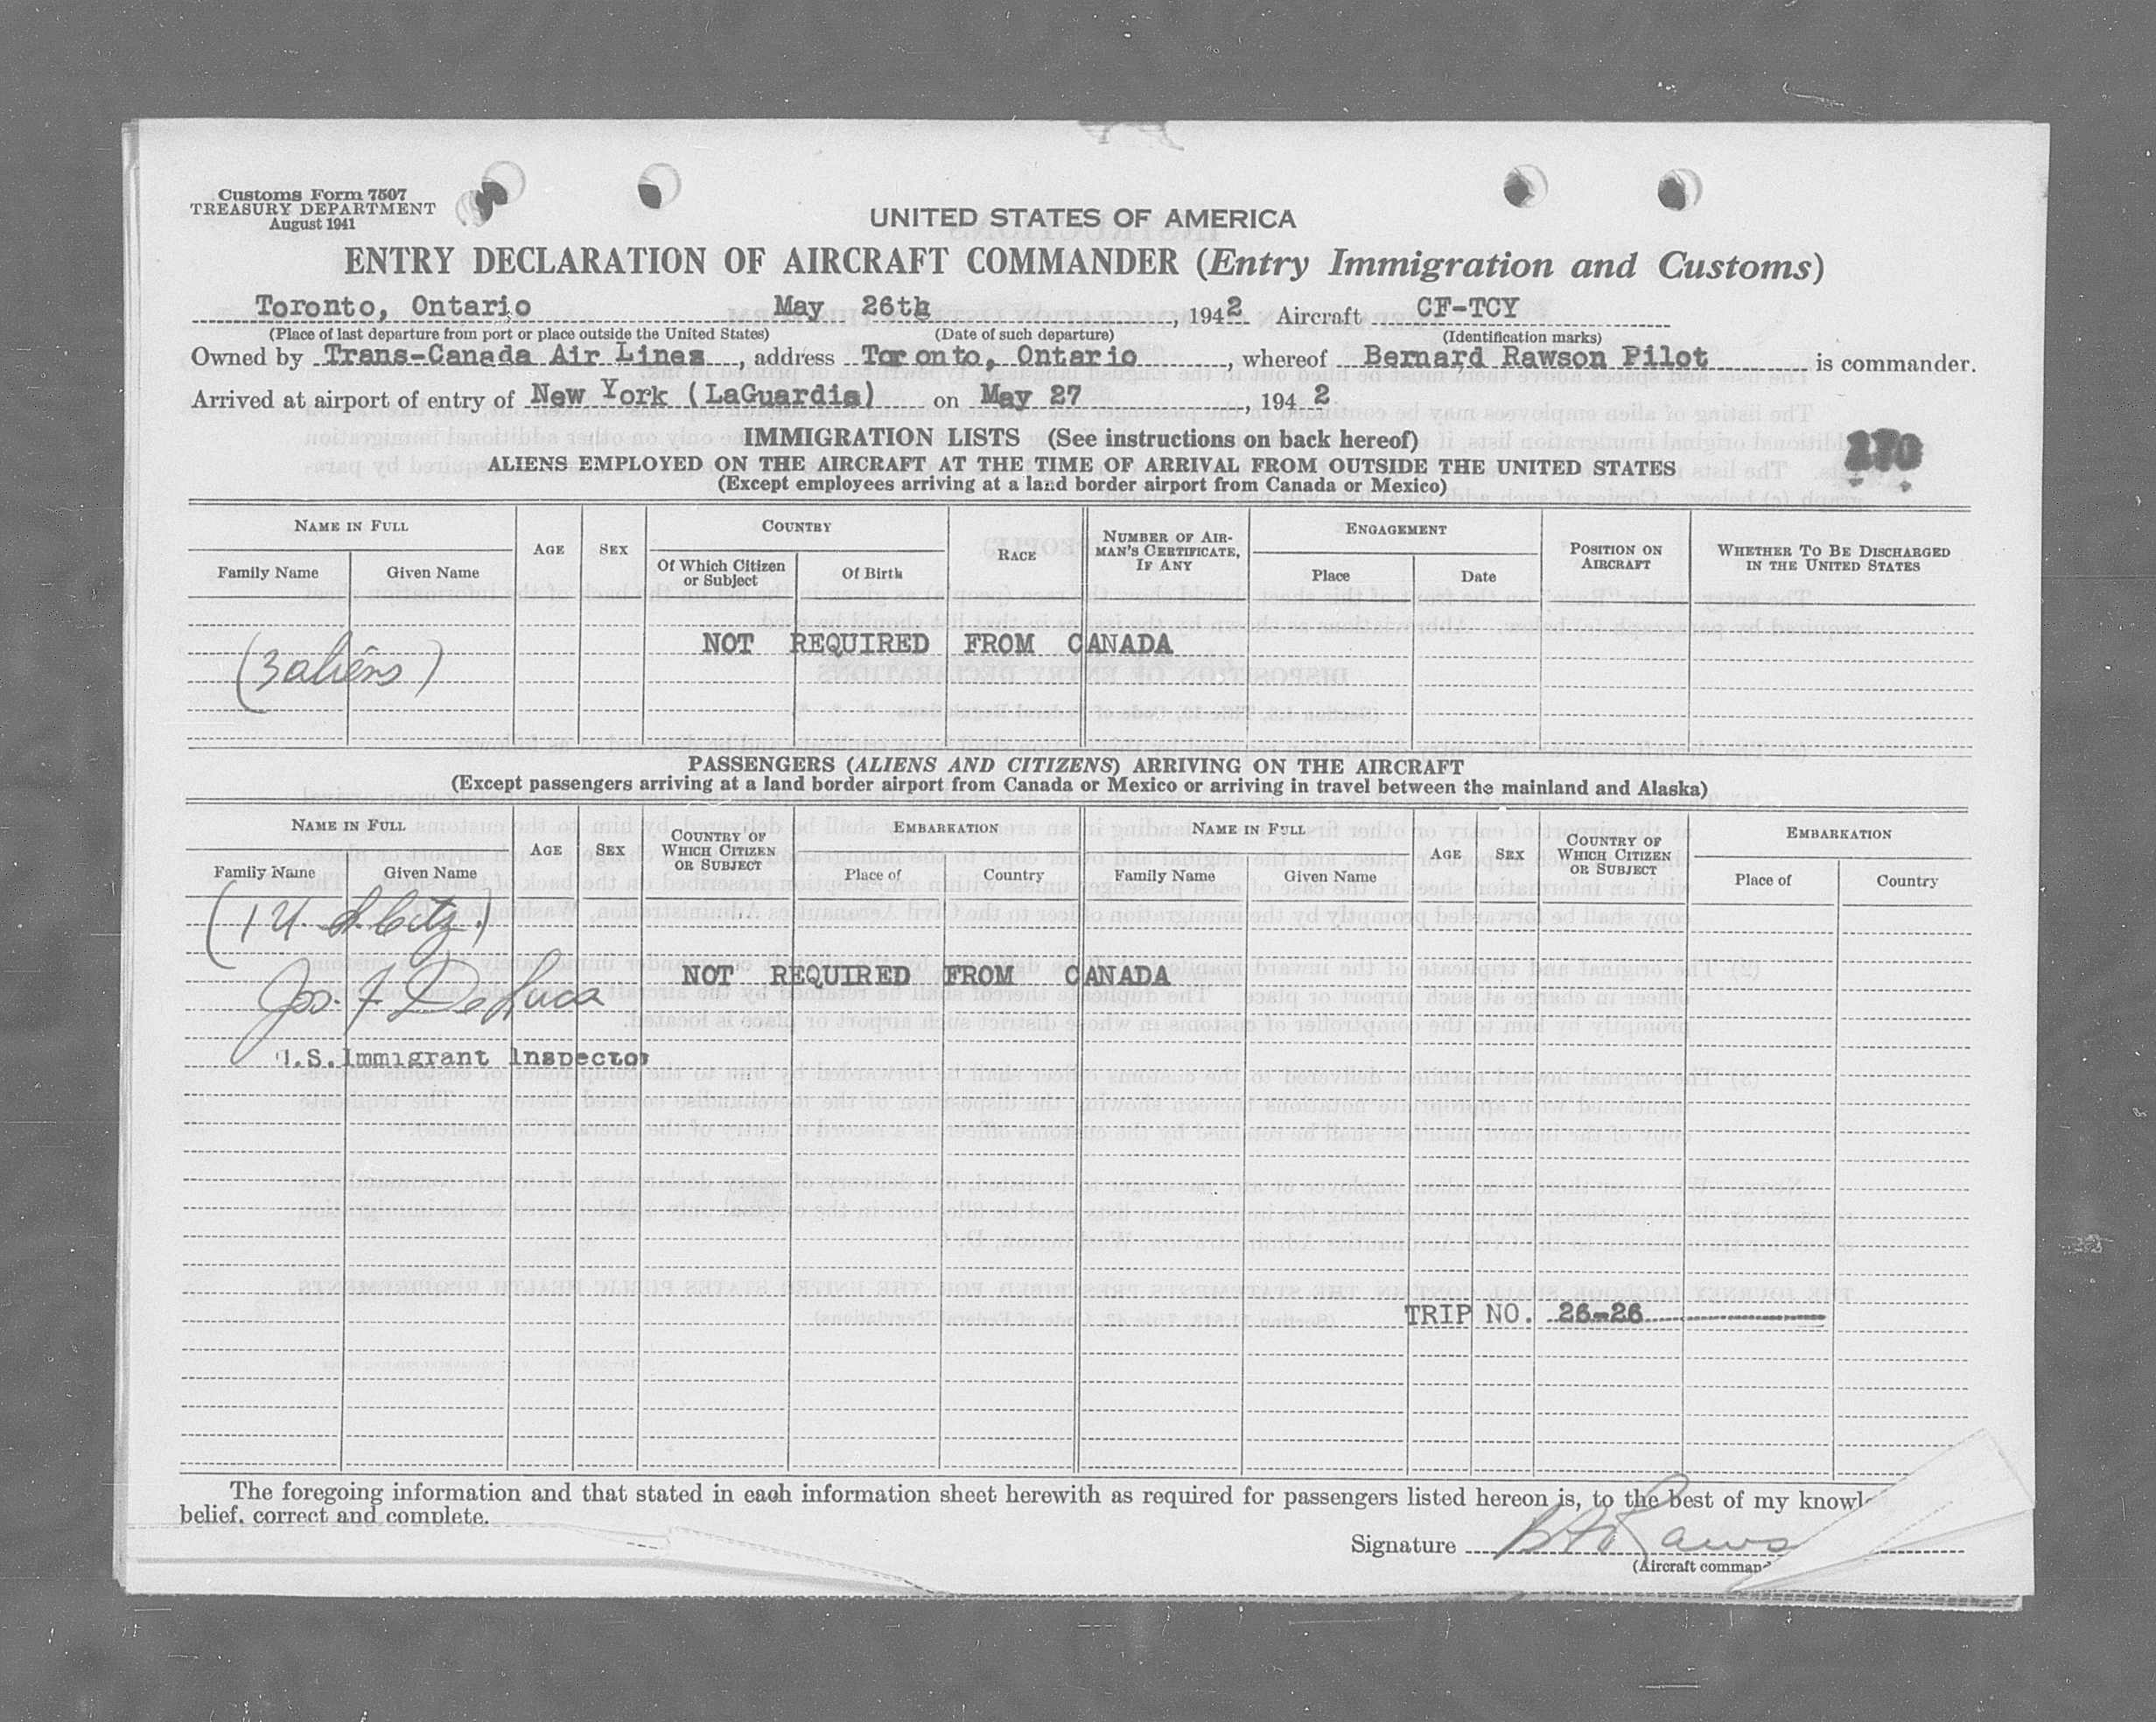 Customs Form 7507
TREASURY DEPARTMENT
August 1941
UNITED STATES OF AMERICA
ENTRY DECLARATION OF AIRCRAFT COMMANDER (Entry Immigration and Customs)
Toronto, Ontario May 26th, 1942 Aircraft CF-TCY
(Place of last departure from port or place outside the United States) (Date of such departure) (Identification marks)
Owned by Trans-Canada Air Lines, address Toronto, Ontario, whereof Bernard Rawson Pilot is commander.
Arrived at airport of entry of New York (LaGuardia) on May 27, 1942
IMMIGRATION LISTS (See instructions on back hereof)
270
ALIENS EMPLOYED ON THE AIRCRAFT AT THE TIME OF ARRIVAL FROM OUTSIDE THE UNITED STATES
(Except employees arriving at a land border airport from Canada or Mexico)
NAME IN FULL
Family Name Given Name
AGE
SEX
COUNTRY
Of Which Citizen or Subject
Of Birth
RACE
NUMBER OF AIRMAN'S CERTIFICATE, IF ANY
ENGAGEMENT
Place Date
POSITION ON AIRCRAFT
WHETHER TO BE DISCHARGED IN THE UNITED STATES
NOT REQUIRED FROM CANADA
(3 aliens)
PASSENGERS (ALIENS AND CITIZENS) ARRIVING ON THE AIRCRAFT
(Except passengers arriving at a land border airport from Canada or Mexico or arriving in travel between the mainland and Alaska)
NAME IN FULL
Family Name Given Name
AGE
SEX
COUNTRY OF WHICH CITIZEN OR SUBJECT
EMBARKATION
Place of Country
NAME IN FULL
Family Name Given Name
AGE
SEX
COUNTRY OF WHICH CITIZEN OR SUBJECT
EMBARKATION
Place of Country
(1 U.S. Citz.)
NOT REQUIRED FROM CANADA
Jos. F DeLuca
U.S. Immigrant Inspector
TRIP NO. 26-26
The foregoing information and that stated in each information sheet herewith as required for passengers listed hereon is, to the best of my knowl
belief, correct and complete.
Signature B A Raws
(Aircraft comman